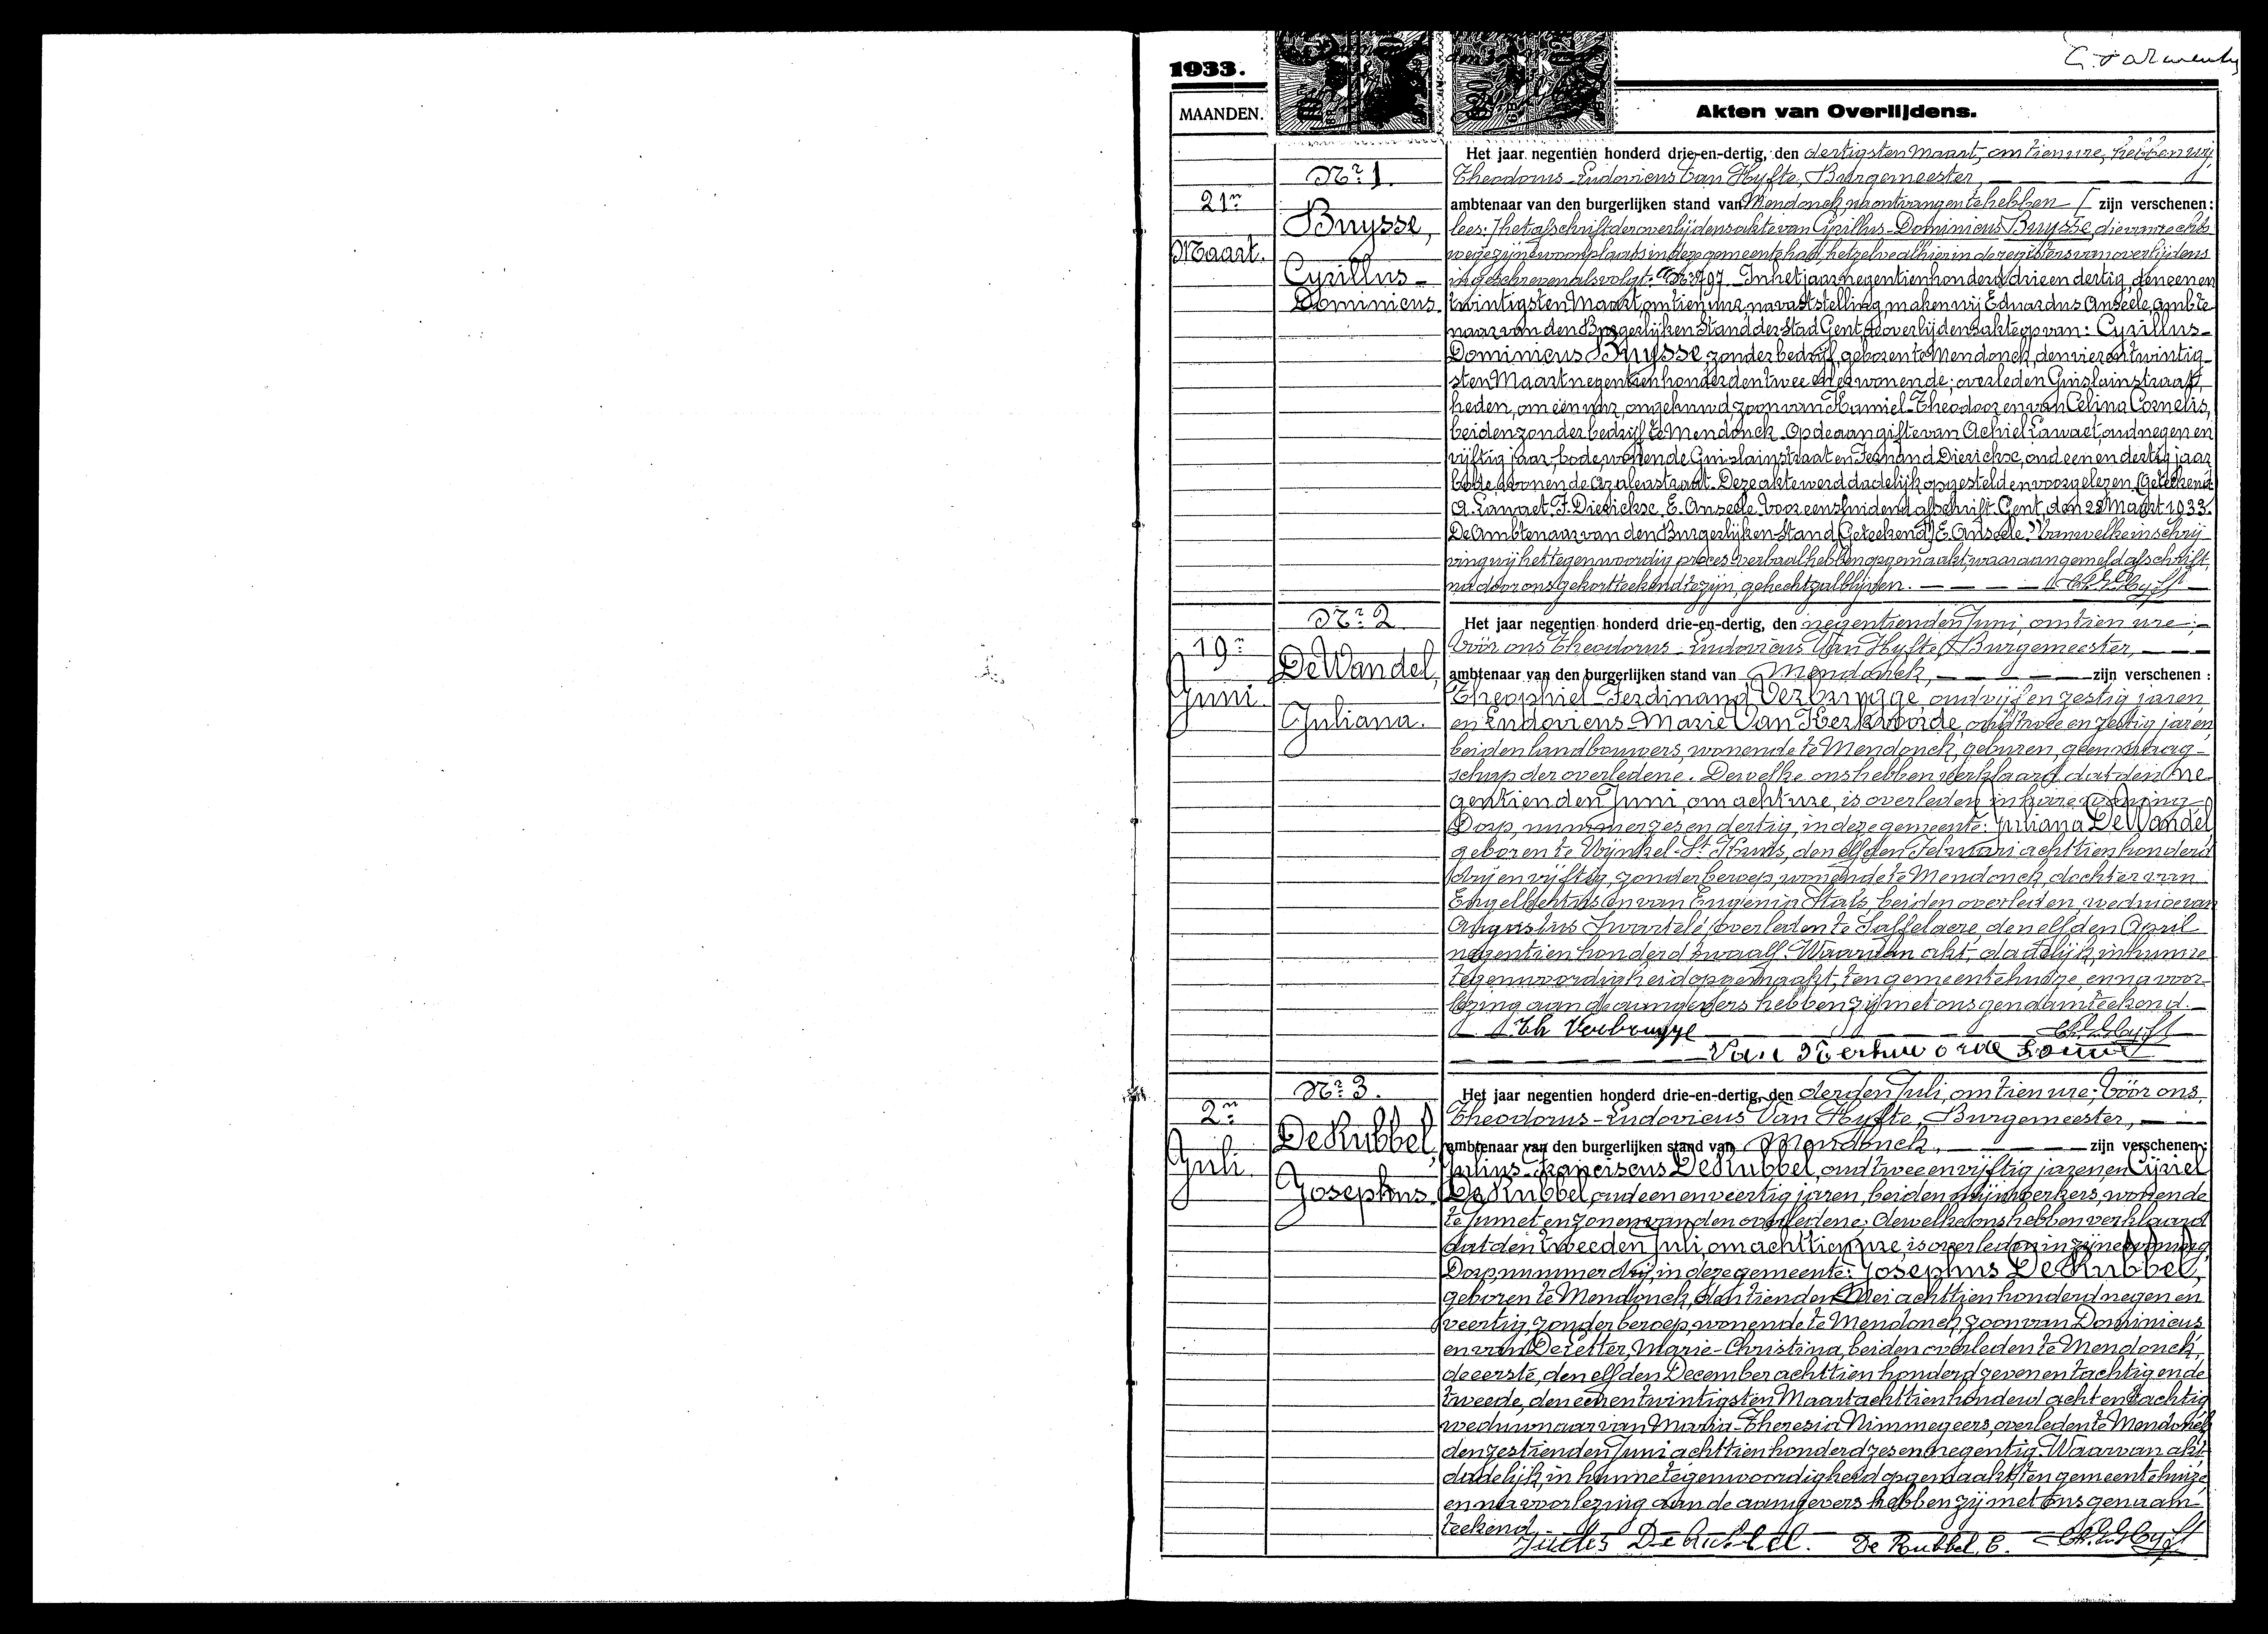 1933.
MAANDEN.
Akten van Overlijdens.
Nr. 1.
21n
Maart.
Buysse,
Cyrillus-
Dominicus.
Het jaar negentien honderd drie-en-dertig, den dertigsten Maart, om tien ure, hebben wij,
Theodorus-Ludovicus Van Hyfte, Burgemeester,
ambtenaar van den burgerlijken stand van Mendonck, na ontvangen te hebben [ zijn verschenen:
lees: ] het afschrift der overlijdensakte van Cyrillus-Dominicus Buysse, die van rechts-
wege zijne woonplaats in deze gemeente had, hetzelve alhier in de registers van overlijdens
ingeschreven als volgt: 797. In het jaar negentienhonderd drie en dertig, den een en
twintigsten Maart, om tien ure, na vaststelling, maken wij Eduardus Anseele, ambte-
naar van den Burgerlijken Stand der Stad Gent, de overlijdensakte op van: Cyrillus-
Dominicus Buysse, zonder bedrijf, geboren te Mendonck, den vier en twintig-
sten Maart negentienhonderd en twee, aldaar wonende, overleden Guislainstraat,
heden, om één uur, ongehuwd, zoon van Kamiel-Theodoor en van Celina Cornelis,
beiden zonder bedrijf te Mendonck. Op de aangifte van Achiel Lawaet, oud negen en
vijftig jaar, bode, wonende Guislainstraat en Fernand Dierickse, oud een en dertig jaar
bode, wonende Azaleastraat. Deze akte werd dadelijk opgesteld en voorgelezen. (Geteekend)
A. Lawaet. F. Dierickse. E. Anseele. Voor eensluidend afschrift. Gent, den 28 Maart 1933.
De Ambtenaar van den Burgerlijken Stand, (Geteekend) E. Anseele." Van welke inschrij-
ving wij het tegenwoordig proces-verbaal hebben opgemaakt, waaraan gemeld afschrift,
na door ons gekortteekend te zijn, gehecht zal blijven.
Nr. 2
19n
Juni.
De Wandel,
Juliana.
Het jaar negentien honderd drie-en-dertig, den negentienden Juni, om tien ure;
Vóór ons Theodorus-Ludovicus Van Hyfte, Burgemeester,
ambtenaar van den burgerlijken stand van Mendonck, zijn verschenen:
Theophiel-Ferdinand Verbrugge, oud vijf en zestig jaren,
en Ludovicus-Marie Van Kerkvoorde, oud twee en zestig jaren,
beiden landbouwers, wonende te Mendonck, geburen, geen maag-
schap der overledene. Dewelke ons hebben verklaard dat den ne-
gentienden Juni, om acht ure, is overleden in hare woning
Dorp, nummer zes en dertig, in deze gemeente: Juliana De Wandel,
geboren te Wijnkel-St Kruis, den elfden Februari achttien honderd
drij en vijftig, zonder beroep, wonende te Mendonck, dochter van
Engelbertus en van Eugenia Stals, beiden overleden, weduwe van
Augustus Swartelé, overleden te Saffelaere, den elfden April
negentien honderd twaalf. Waarvan akt, dadelijk, in hunne
tegenwoordigheid opgemaakt, ten gemeentehuize, en na voor-
lezing aan de aangevers hebben zij met ons genaamteekend.
Th Verbrugge
Nr. 3.
2n
Juli.
De Rubbel,
Josephus.
Het jaar negentien honderd drie-en-dertig, den derden Juli, om tien ure; Vóór ons
Theodorus-Ludovicus Van Hyfte, Burgemeester,
ambtenaar van den burgerlijken stand van Mendonck, zijn verschenen:
Julius-Franciscus De Rubbel, oud twee en vijftig jaren, en Cyriel
De Rubbel, oud een en veertig jaren, beiden mijnwerkers, wonende
te Jumet en zonen van den overledene; dewelke ons hebben verklaard
dat den tweeden Juli, om achttien ure, is overleden in zijne woning,
Dorp nummer drij, in deze gemeente: Josephus De Rubbel,
geboren te Mendonck, den tienden Mei achttien honderd negen en
veertig, zonder beroep, wonende te Mendonck, zoon van Dominicus
en van De Letter, Marie-Christina, beiden overleden te Mendonck,
de eerste, den elfden December achttien honderd zeven en tachtig en de
tweede, den een en twintigsten Maart achttien honderd acht en tachtig
weduwnaar van Maria-Theresia Nimmegeers, overleden te Mendonck
den zestienden Juni achttien honderd zes en negentig. Waarvan akt,
dadelijk, in hunne tegenwoordigheid opgemaakt, ten gemeentehuize,
en na voorlezing aan de aangevers hebben zij met ons genaam-
teekend.
Jules De Rubbel. De Rubbel. C.